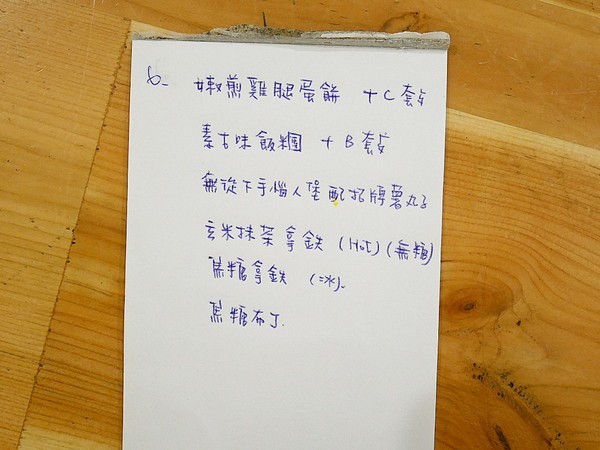 6.
嫩煎雞腿蛋餅 +C套
素古味飯糰 + B套
無從下手惱人堡配招牌薯丸子
玄米抹茶拿鐵 (Hot) (無糖)
焦糖拿鐵 (冰).
焦糖布丁.